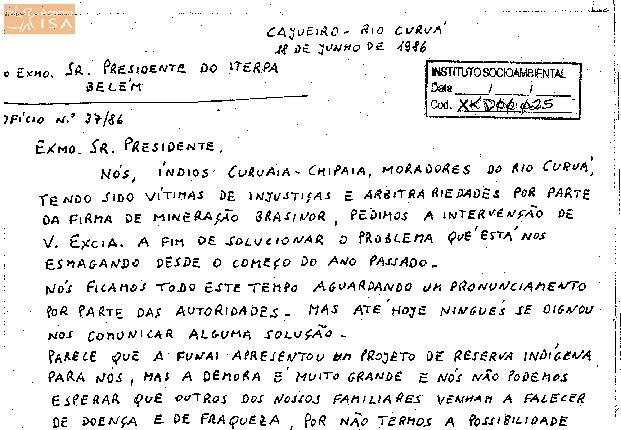 Acervo
ISA
CAJUEIRO - RIO CURUÁ
18 DE JUNHO DE 1986
O EXMO. SR. PRESIDENTE DO ITERPA
BELÉM
INSTITUTO SOCIOAMBIENTAL
Data ___/___/___
Cod.
OFÍCIO N.º 37/86
EXMO. SR. PRESIDENTE,
NÓS, ÍNDIOS CURUAIA-CHIPAIA, MORADORES DO RIO CURUÁ,
TENDO SIDO VÍTIMAS DE INJUSTIÇAS E ARBITRARIEDADES POR PARTE
DA FIRMA DE MINERAÇÃO BRASINOR, PEDIMOS A INTERVENÇÃO DE
V. EXCIA. A FIM DE SOLUCIONAR O PROBLEMA QUE ESTÁ NOS
ESMAGANDO DESDE O COMEÇO DO ANO PASSADO.
NÓS FICAMOS TODO ESTE TEMPO AGUARDANDO UM PRONUNCIAMENTO
POR PARTE DAS AUTORIDADES. MAS ATÉ HOJE NINGUÉS SE DIGNOU
NOS COMUNICAR ALGUMA SOLUÇÃO.
PARECE QUE A FUNAI APRESENTOU UM PROJETO DE RESERVA INDÍGENA
PARA NÓS, MAS A DEMORA É MUITO GRANDE E NÓS NÃO PODEMOS
ESPERAR QUE OUTROS DOS NOSSOS FAMILIARES VENHAM A FALECER
DE DOENÇA E DE FRAQUEZA, POR NÃO TERMOS A POSSIBILIDADE